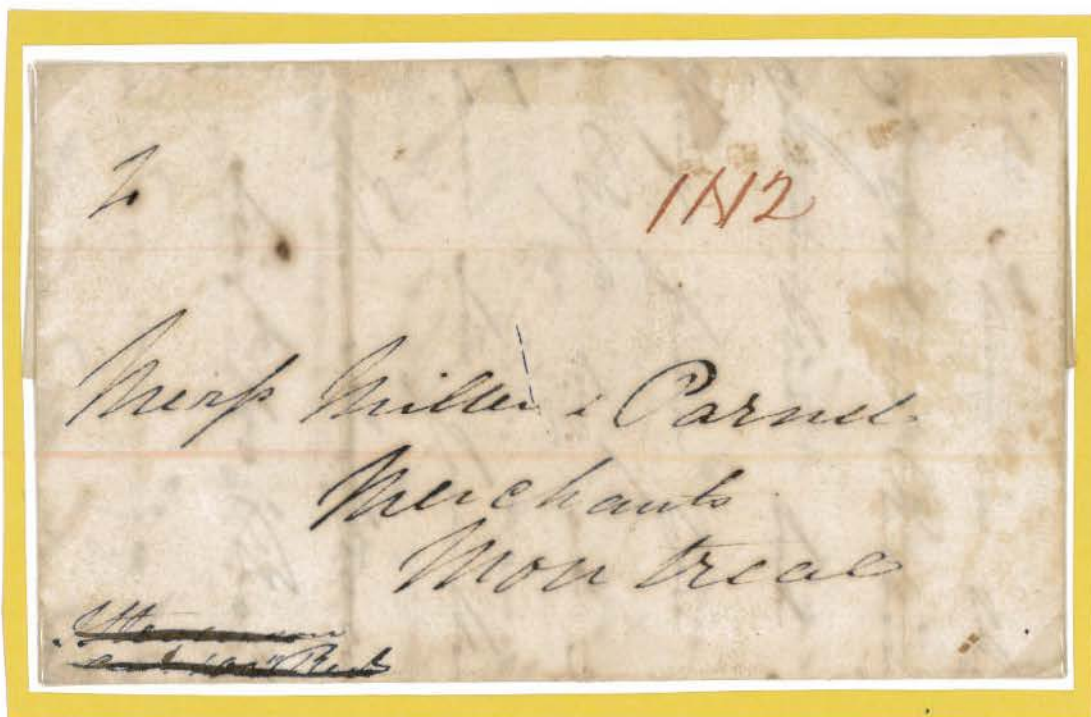 To
1N12
Messs Miller & Parnel
Merchants
Montreal